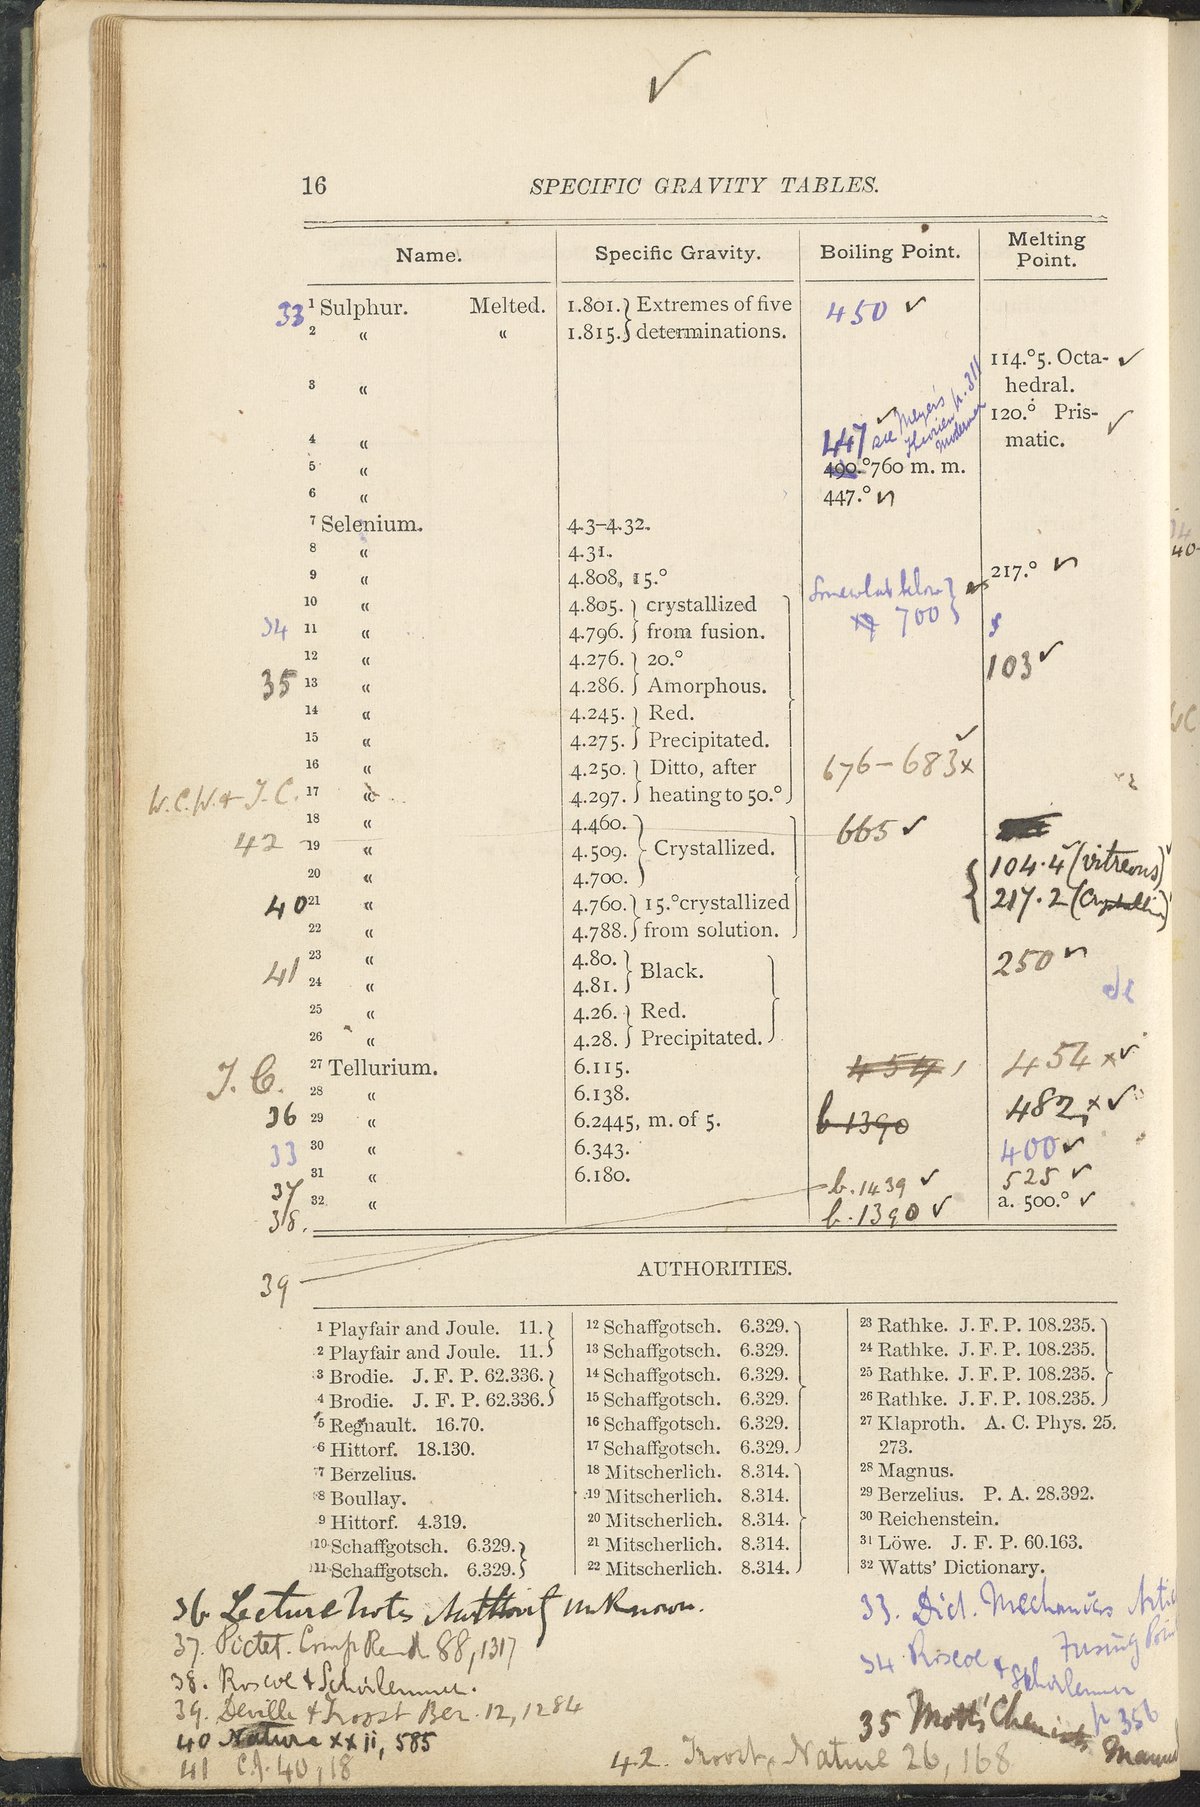 16 SPECIFIC GRAVITY TABLES.
Name. Specific Gravity. Boiling Point. Melting Point.
33 1 Sulphur. Melted. 1.801. } Extremes of five 450 ✓
2 “ “ 1.815. } determinations.
114.°5. Octa- ✓
3 “ hedral.
see Meyer's Theorien p. 311 Modernen
120.° Pris- ✓
4 “ 447 matic.
5 “ 490.°760 m. m.
6 “ 447.°
7 Selenium. 4.3-4.32.
8 “ 4.31.
9 “ 4.808, 15.° Somewhat below 217.°
10 “ 4.805. } crystallized 700
34 11 “ 4.796. } from fusion.
12 “ 4.276. } 20.° 103 ✓
35 13 “ 4.286. } Amorphous.
14 “ 4.245. } Red.
15 “ 4.275. } Precipitated.
16 “ 4.250. } Ditto, after 676-683x
W.C.W. & J.C. 17 “ 4.297. } heating to 50.°
18 “ 4.460. 665 ✓
42 19 “ 4.509. } Crystallized.
20 “ 4.700. 104.4 (vitreous)
40 21 “ 4.760. } 15.° crystallized 217.2 (Crystalline)
22 “ 4.788. } from solution.
23 “ 4.80. } Black. 250
41 24 “ 4.81.
25 “ 4.26. } Red.
26 “ 4.28. } Precipitated.
J. C. 27 Tellurium. 6.115. 454 454 x✓
28 “ 6.138. 482, x ✓
36 29 “ 6.2445, m. of 5. b 1390
33 30 “ 6.343. 400 ✓
31 “ 6.180. b. 1439 ✓ 525 ✓
37 32 “ b. 1390 ✓ a. 500.° ✓
38.
39
AUTHORITIES.
1 Playfair and Joule. 11.
2 Playfair and Joule. 11.
3 Brodie. J. F. P. 62.336.
4 Brodie. J. F. P. 62.336.
5 Regnault. 16.70.
6 Hittorf. 18.130.
7 Berzelius.
8 Boullay.
9 Hittorf. 4.319.
10 Schaffgotsch. 6.329.
11 Schaffgotsch. 6.329.
12 Schaffgotsch. 6.329.
13 Schaffgotsch. 6.329.
14 Schaffgotsch. 6.329.
15 Schaffgotsch. 6.329.
16 Schaffgotsch. 6.329.
17 Schaffgotsch. 6.329.
18 Mitscherlich. 8.314.
19 Mitscherlich. 8.314.
20 Mitscherlich. 8.314.
21 Mitscherlich. 8.314.
22 Mitscherlich. 8.314.
23 Rathke. J. F. P. 108.235.
24 Rathke. J. F. P. 108.235.
25 Rathke. J. F. P. 108.235.
26 Rathke. J. F. P. 108.235.
27 Klaproth. A. C. Phys. 25.
273.
28 Magnus.
29 Berzelius. P. A. 28.392.
30 Reichenstein.
31 Löwe. J. F. P. 60.163.
32 Watts’ Dictionary.
36 Lecture Notes Authority unknown.
37. Pictet. Comp Rend 88, 1317
38. Roscoe & Schorlemmer.
39. Deville & Troost Ber. 12, 1284
40 Nature xxii, 585
41 CJ. 40, 18
42. Troost, Nature 26, 168
33. Dict. Mechanics
Fusing
34 Roscoe & Schorlemmer
p 356
35 Mott's Chemists